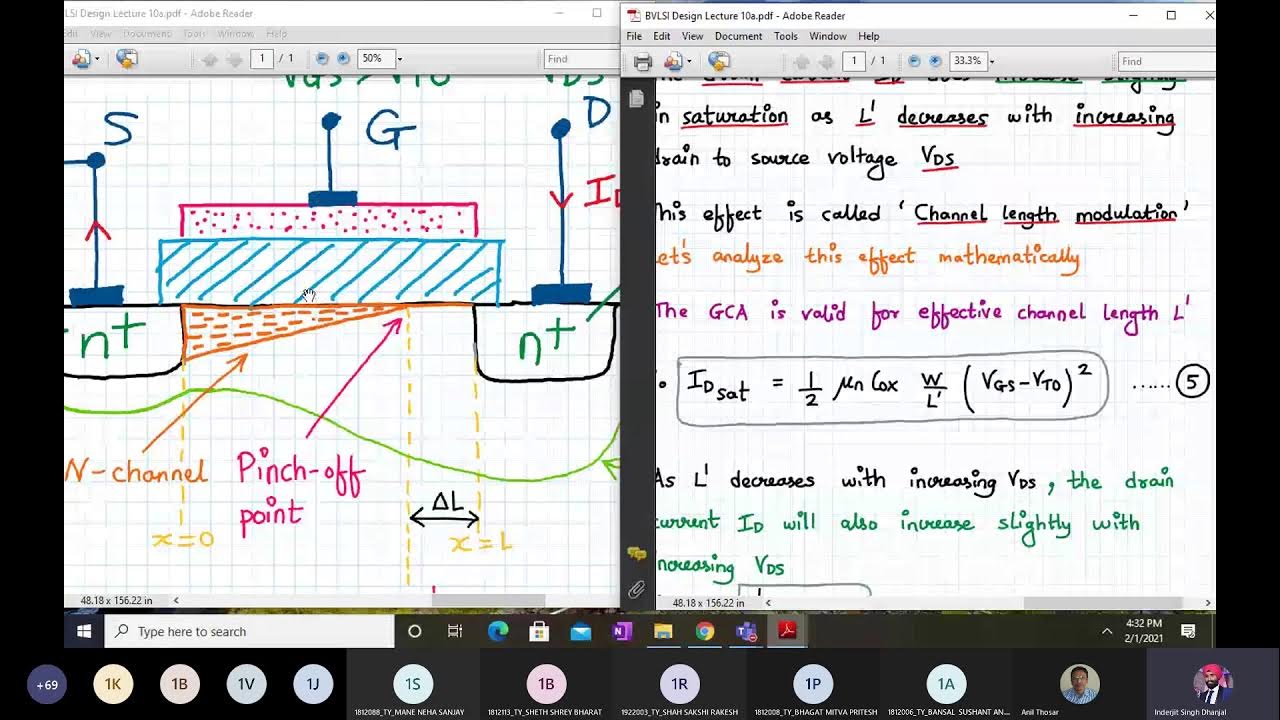 BVLSI Design Lecture 10a.pdf - Adobe Reader
File Edit View Document Tools Window Help
1 / 1 33.3% Find
in saturation as L' decreases with increasing
drain to source voltage VDS
This effect is called 'Channel length modulation'
Let's analyze this effect mathematically
The GCA is valid for effective channel length L'
IDsat = 1/2 μn Cox W/L' (VGS-VTO)² ...... 5
As L' decreases with increasing VDS, the drain
current ID will also increase slightly with
increasing VDS
48.18 x 156.22 in
LSI Design Lecture 10a.pdf - Adobe Reader
Edit View Document Tools Window Help
1 / 1 50% Find
VGS > VTO VDS
S G D
ID
n+ n+
N-channel Pinch-off
point
ΔL
x=0 x=L
48.18 x 156.22 in
Type here to search
4:32 PM
2/1/2021
+69 1K 1B 1V 1J 1S 1B 1R 1P 1A
1812088_TY_MANE NEHA SANJAY 1812113_TY_SHETH SHREY BHARAT 1922003_TY_SHAH SAKSHI RAKESH 1812008_TY_BHAGAT MITVA PRITESH 1812006_TY_BANSAL SUSHANT AN... Anil Thosar Inderjit Singh Dhanjal